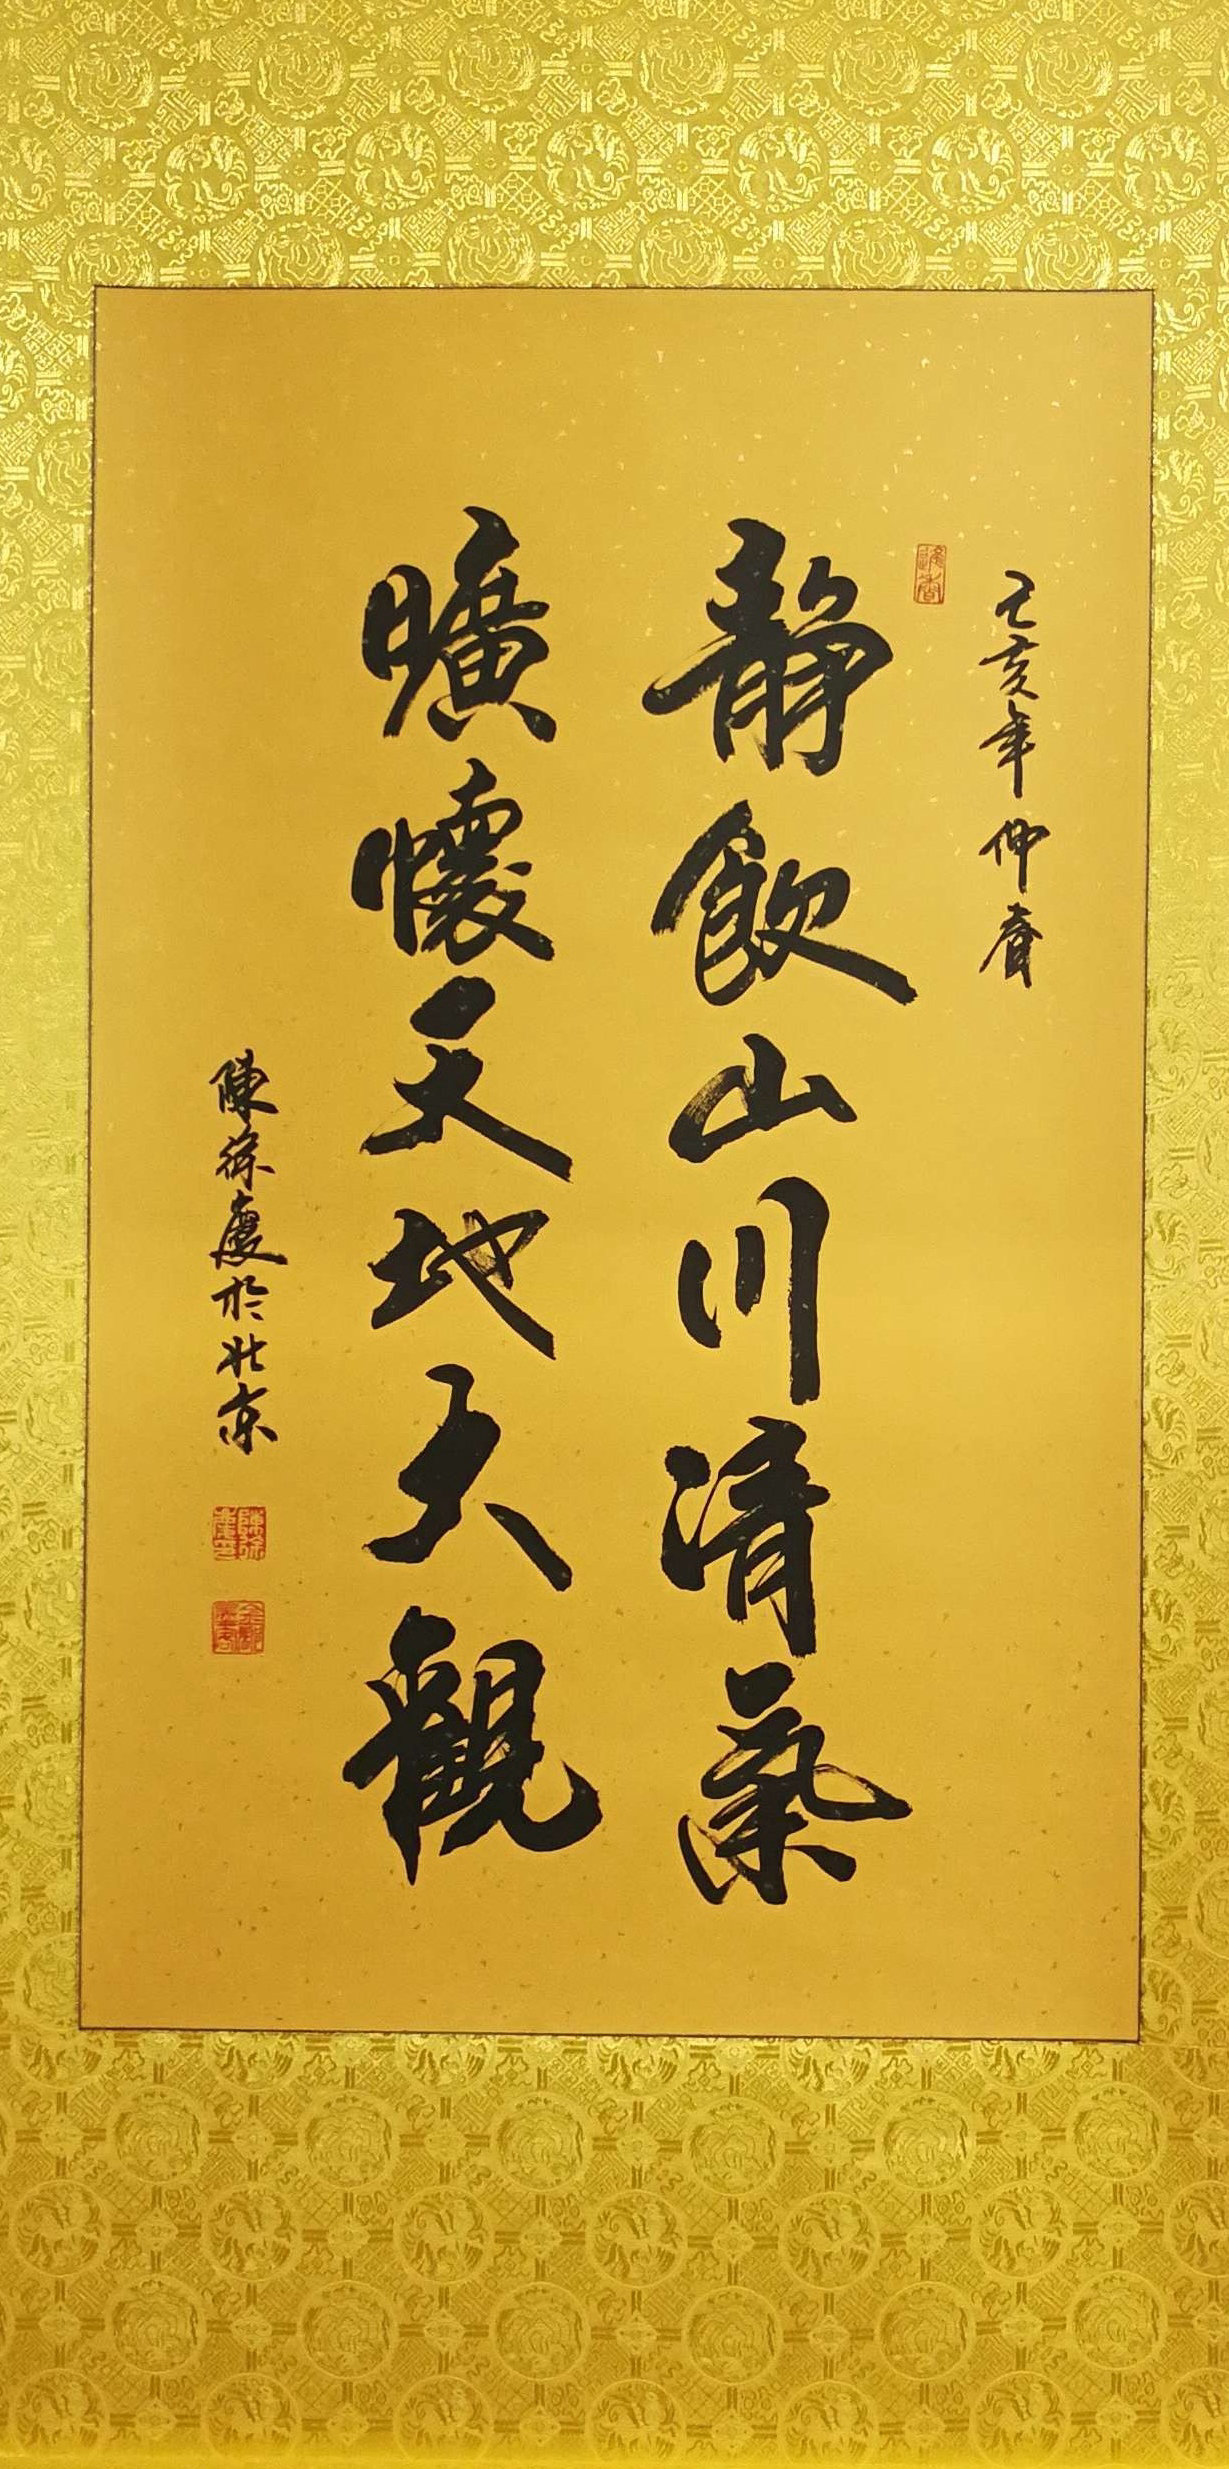 己亥年仲春
静飲山川清氣
曠懷天地大觀
陳徐慶於北京